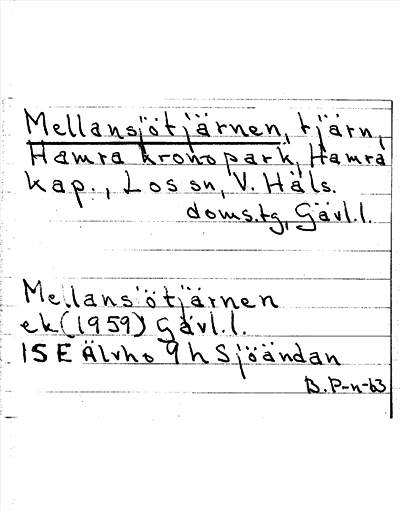 Mellansjötjärnen, tjärn,
Hamra kronopark, Hamra
kap., Los sn, V. Häls.
doms.tg, Gävl.l.
Mellansjötjärnen
ek (1959) Gävl.l.
15E Älvho 9h Sjöändan
B. P-n-63